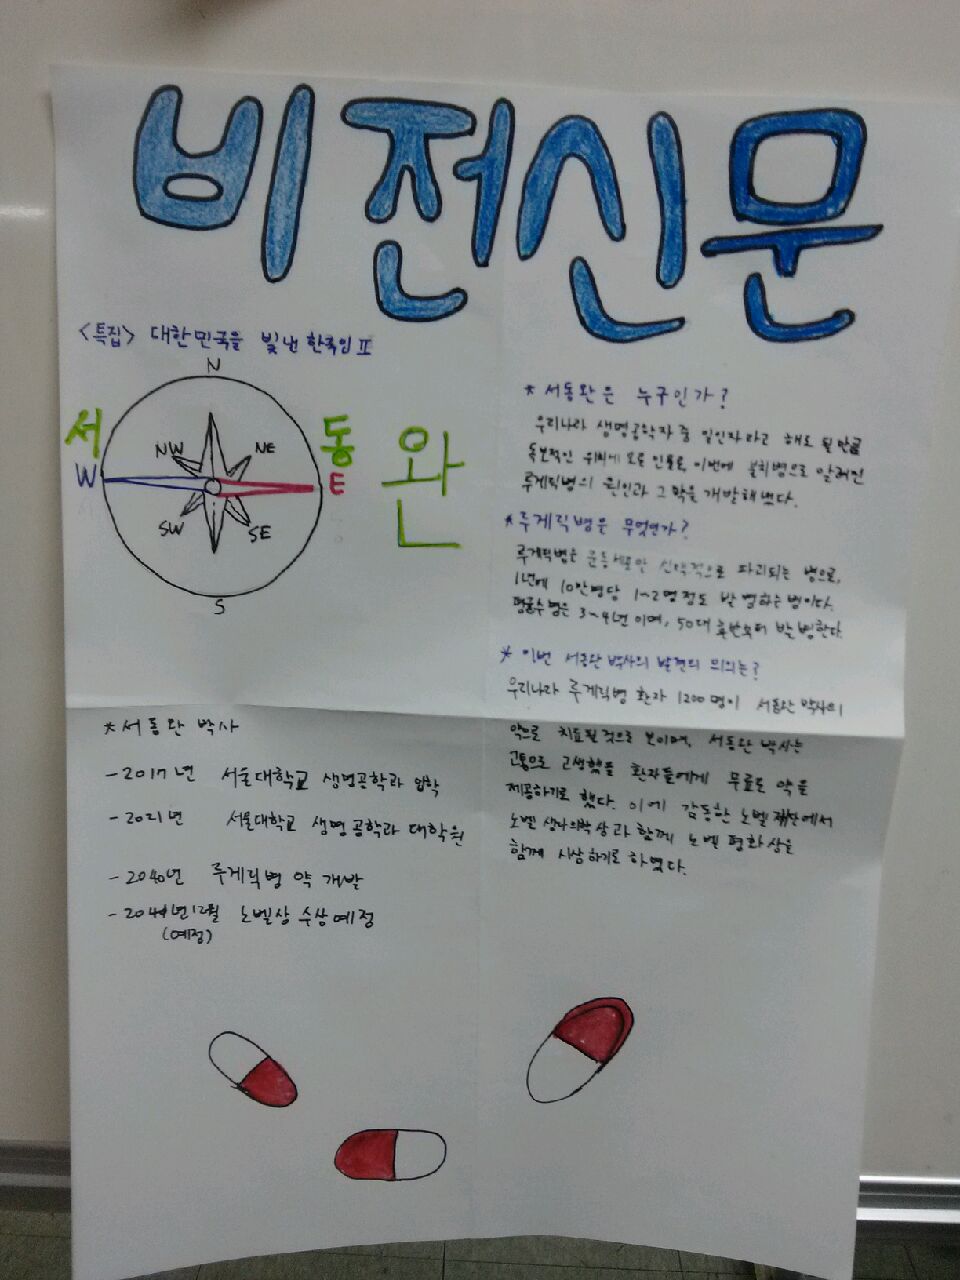 비전신문
<특집> 대한민국을 빛낸 한국인 II
N
서 동 완
NW NE
W E
SW SE
S
* 서동완 박사
- 2017년 서울대학교 생명공학과 입학
- 2021년 서울대학교 생명공학과 대학원
- 2040년 루게릭병 약 개발
년 12월 노벨상 수상예정
(예정)
* 서동완은 누구인가?
우리나라 생명공학자 중 일인자라고 해도 될만큼
독보적인 위치에 오른 인물로, 이번에 불치병으로 알려진
루게릭병의 원인과 그 약을 개발해냈다.
* 루게릭병은 무엇인가?
루게릭병은 운동세포만 선택적으로 파괴되는 병으로,
1년에 10만명당 1~2명 정도 발병하는 병이다.
평균수명은 3~4년이며, 50대 후반부터 발병한다.
* 이번 서동완 박사의 발견의 의의는?
우리나라 루게릭병 환자 1200명이 서동완 박사의
약으로 치료될 것으로 보이며, 서동완 박사는
고통으로 고생했을 환자들에게 무료로 약을
제공하기로 했다. 이에 감동한 노벨 재단에서
노벨 생리의학상과 함께 노벨 평화상을
함께 시상하기로 하였다.